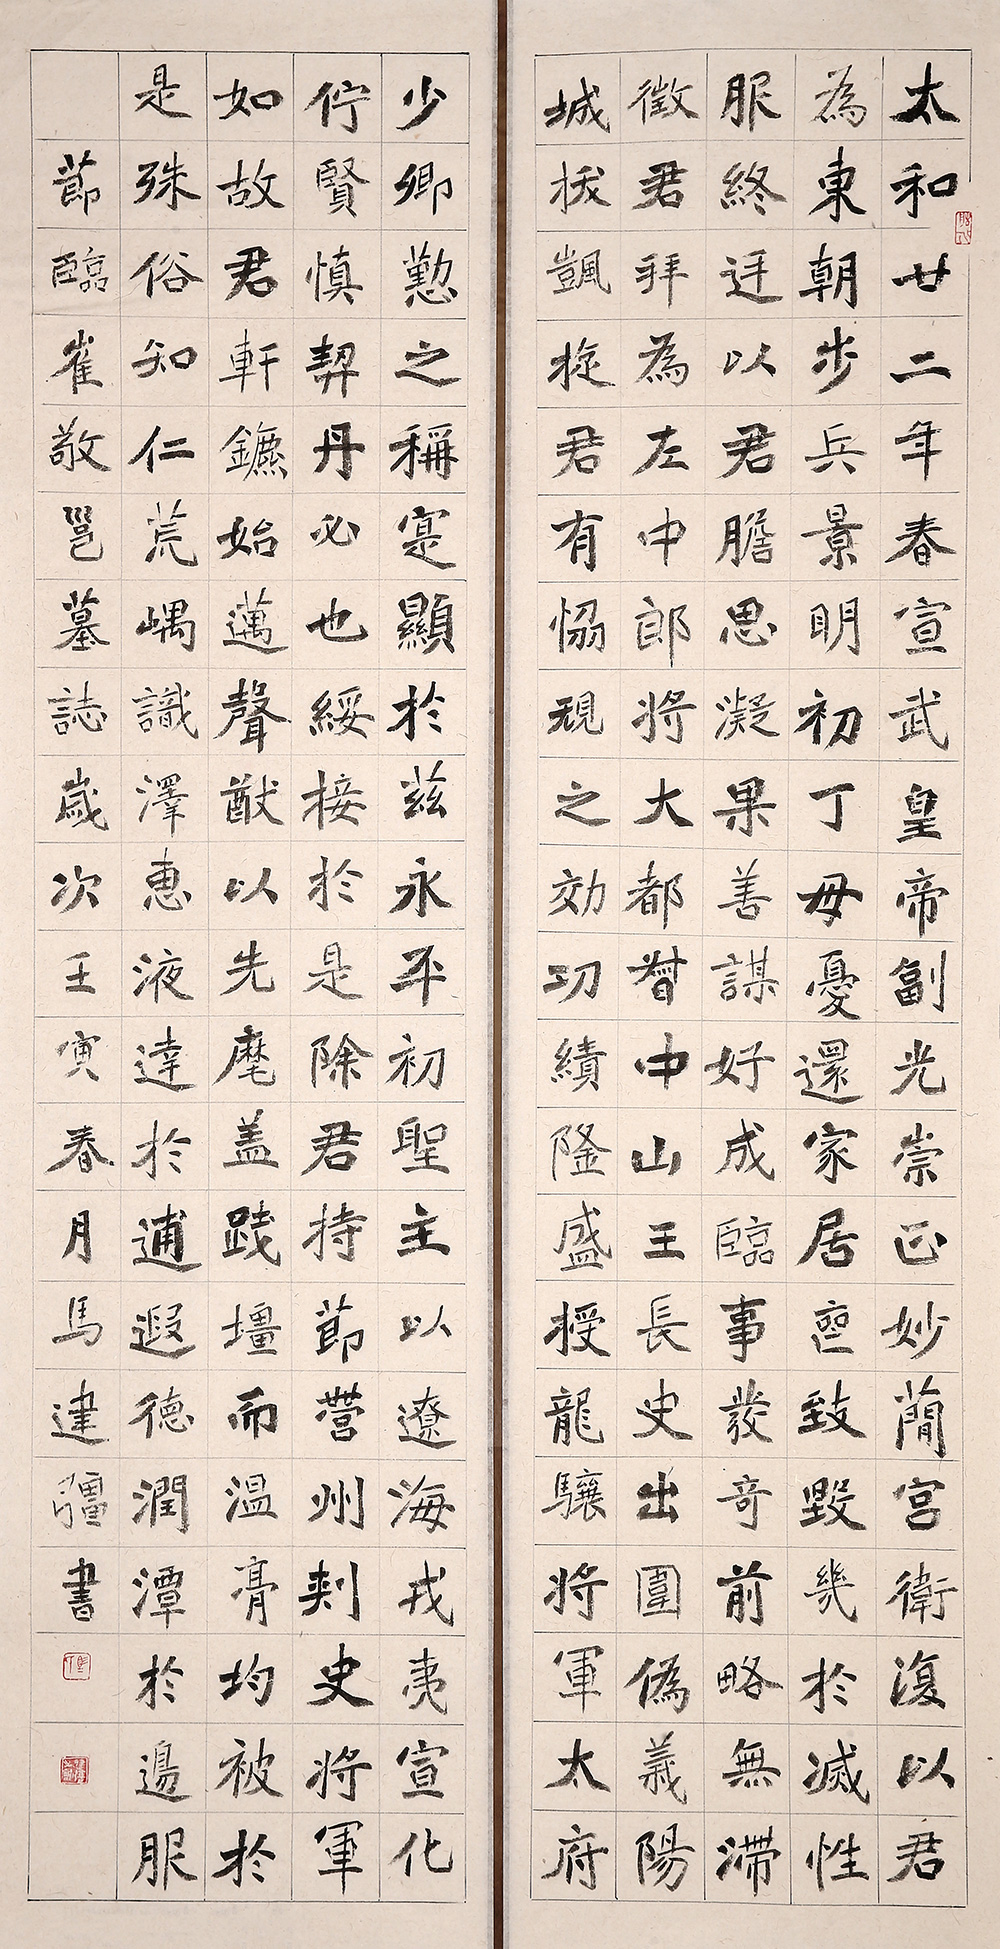 太和廿二年春宣武皇帝副光崇正妙簡宮衛復以君
為東朝步兵景明初丁母憂還家居喪致毀幾於滅性
服終迋以君膽思凝果善謀好成臨事發奇前略無滯
徵君拜為左中郎將大都督中山王長史出圍偽義陽
城拔凱旋君有協規之効功績隆盛授龍驤將軍太府
少卿懃之稱寔顯於茲永平初聖主以遼海戎夷宣化
佇賢慎契丹必也綏接於是除君持莭營州刺史將軍
如故君軒鑣始邁聲猷以先麾盖踐壃而溫膏均被於
是殊俗知仁荒嵎識澤惠液達於逋遐德潤潭於邊服
莭臨崔敬邕墓誌歲次壬寅春月馬建疆書